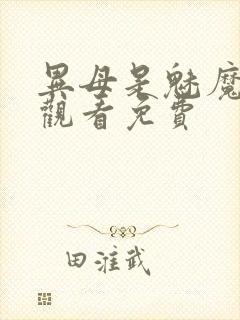 異母是魅魔
觀看免費
田淮武